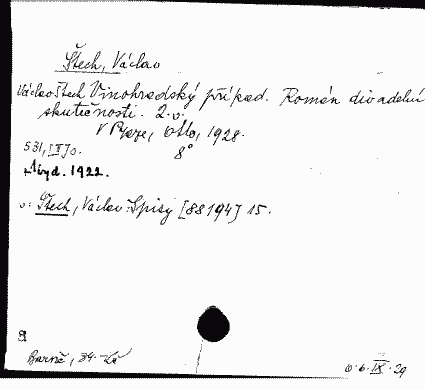 Štech, Václav
Václav Štech Vinohradský případ. Román divadelní
skutečnosti. 2.v.
V Praze, Otto, 1928.
8°
531, [IV] s.
1. vyd. 1922.
v: Štech, Václav: Spisy [88194] 15.
a
34.
6. IX. 29